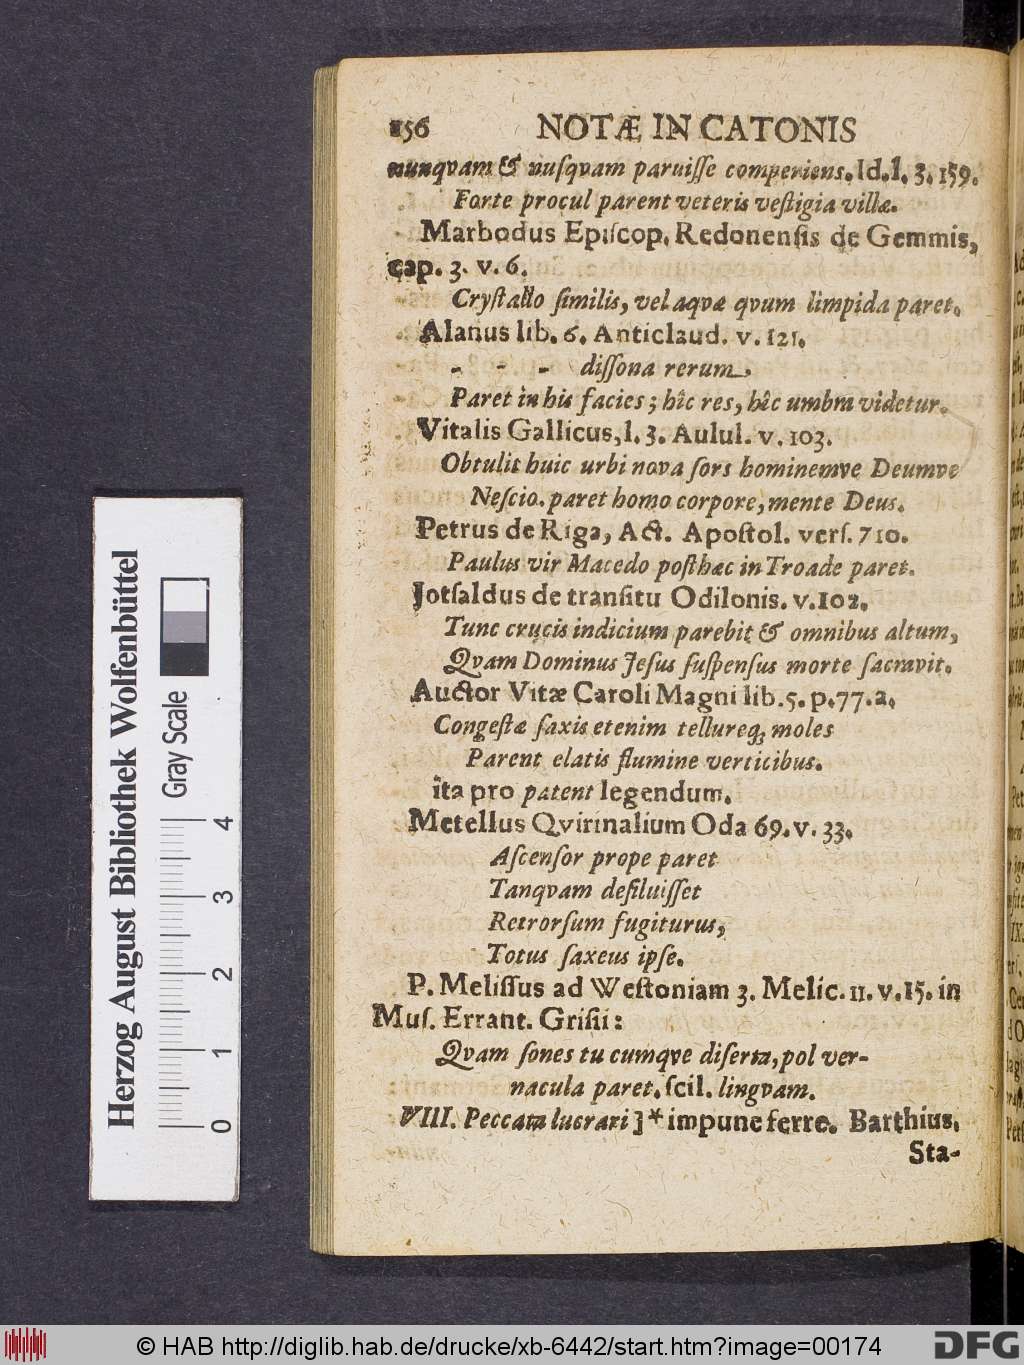 156 NOTÆ IN CATONIS
nunqvam & nuſqvam paruiſſe comperiens. Id. l. 3. 159.
Forte procul parent veteris veſtigia villæ.
Marbodus Epiſcop. Redonenſis de Gemmis,
cap. 3. v. 6.
Cryſtallo ſimilis, vel aqvæ qvum limpida paret.
Alanus lib. 6. Anticlaud. v. 121.
- - - diſſona rerum
Paret in his facies; hîc res, hîc umbra videtur.
Vitalis Gallicus, l. 3. Aulul. v. 103.
Obtulit huic urbi nova ſors hominemve Deumve
Neſcio. paret homo corpore, mente Deus.
Petrus de Riga, Act. Apoſtol. verſ. 710.
Paulus vir Macedo poſthac in Troade paret.
Jotſaldus de tranſitu Odilonis. v. 102.
Tunc crucis indicium parebit & omnibus altum,
Qvam Dominus Jeſus ſuſpenſus morte ſacravit.
Auctor Vitæ Caroli Magni lib. 5. p. 77. a.
Congeſtæ ſaxis etenim tellureq; moles
Parent elatis flumine verticibus.
ita pro patent legendum.
Metellus Qvirinalium Oda 69. v. 33.
Aſcenſor prope paret
Tanqvam deſiluiſſet
Retrorſum fugiturus,
Totus ſaxeus ipſe.
P. Meliſſus ad Weſtoniam 3. Melic. 11. v. 15. in
Muſ. Errant. Griſii:
Qvam ſones tu cumqve diſerta, pol ver-
nacula paret. ſcil. lingvam.
VIII. Peccata lucrari ]* impune ferre. Barthius.
Sta-
Herzog August Bibliothek Wolfenbüttel
Gray Scale
0 1 2 3 4
© HAB http://diglib.hab.de/drucke/xb-6442/start.htm?image=00174
DFG